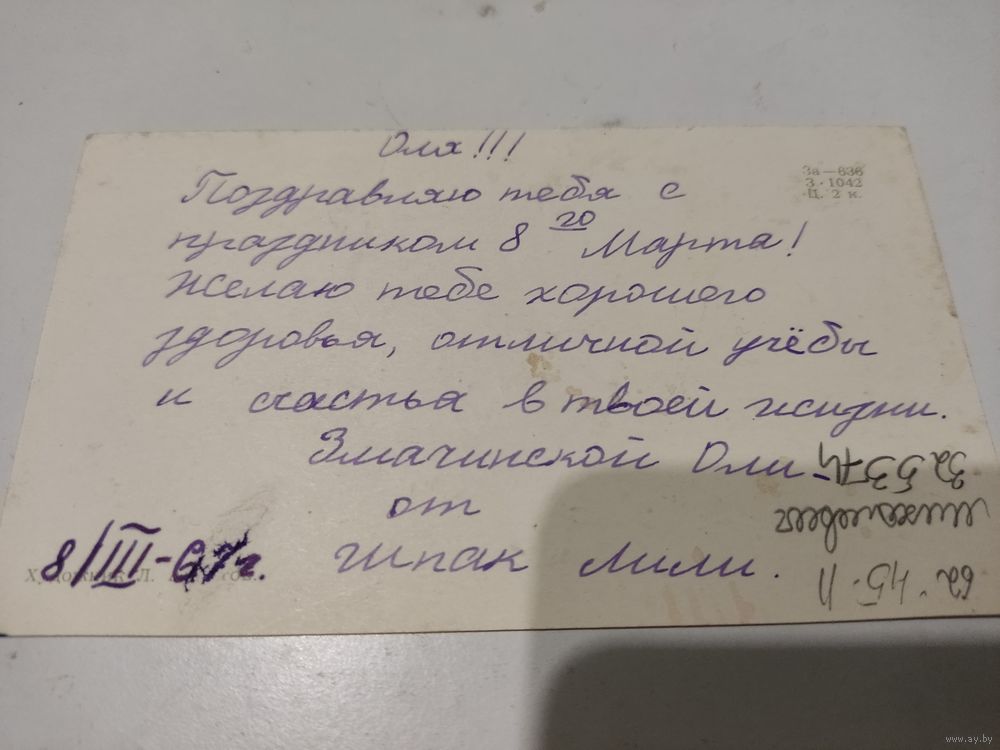 Оля!!!
За—636
З. 1042
Ц. 2 к.
Поздравляю тебя с
праздником 8 го Марта!
Желаю тебе хорошего
здоровья, отличной учёбы
и счастья в твоей жизни.
Змачинской Оли
от
Шпак Лили.
8/III-67г.
Художник Л.
www.ay.by